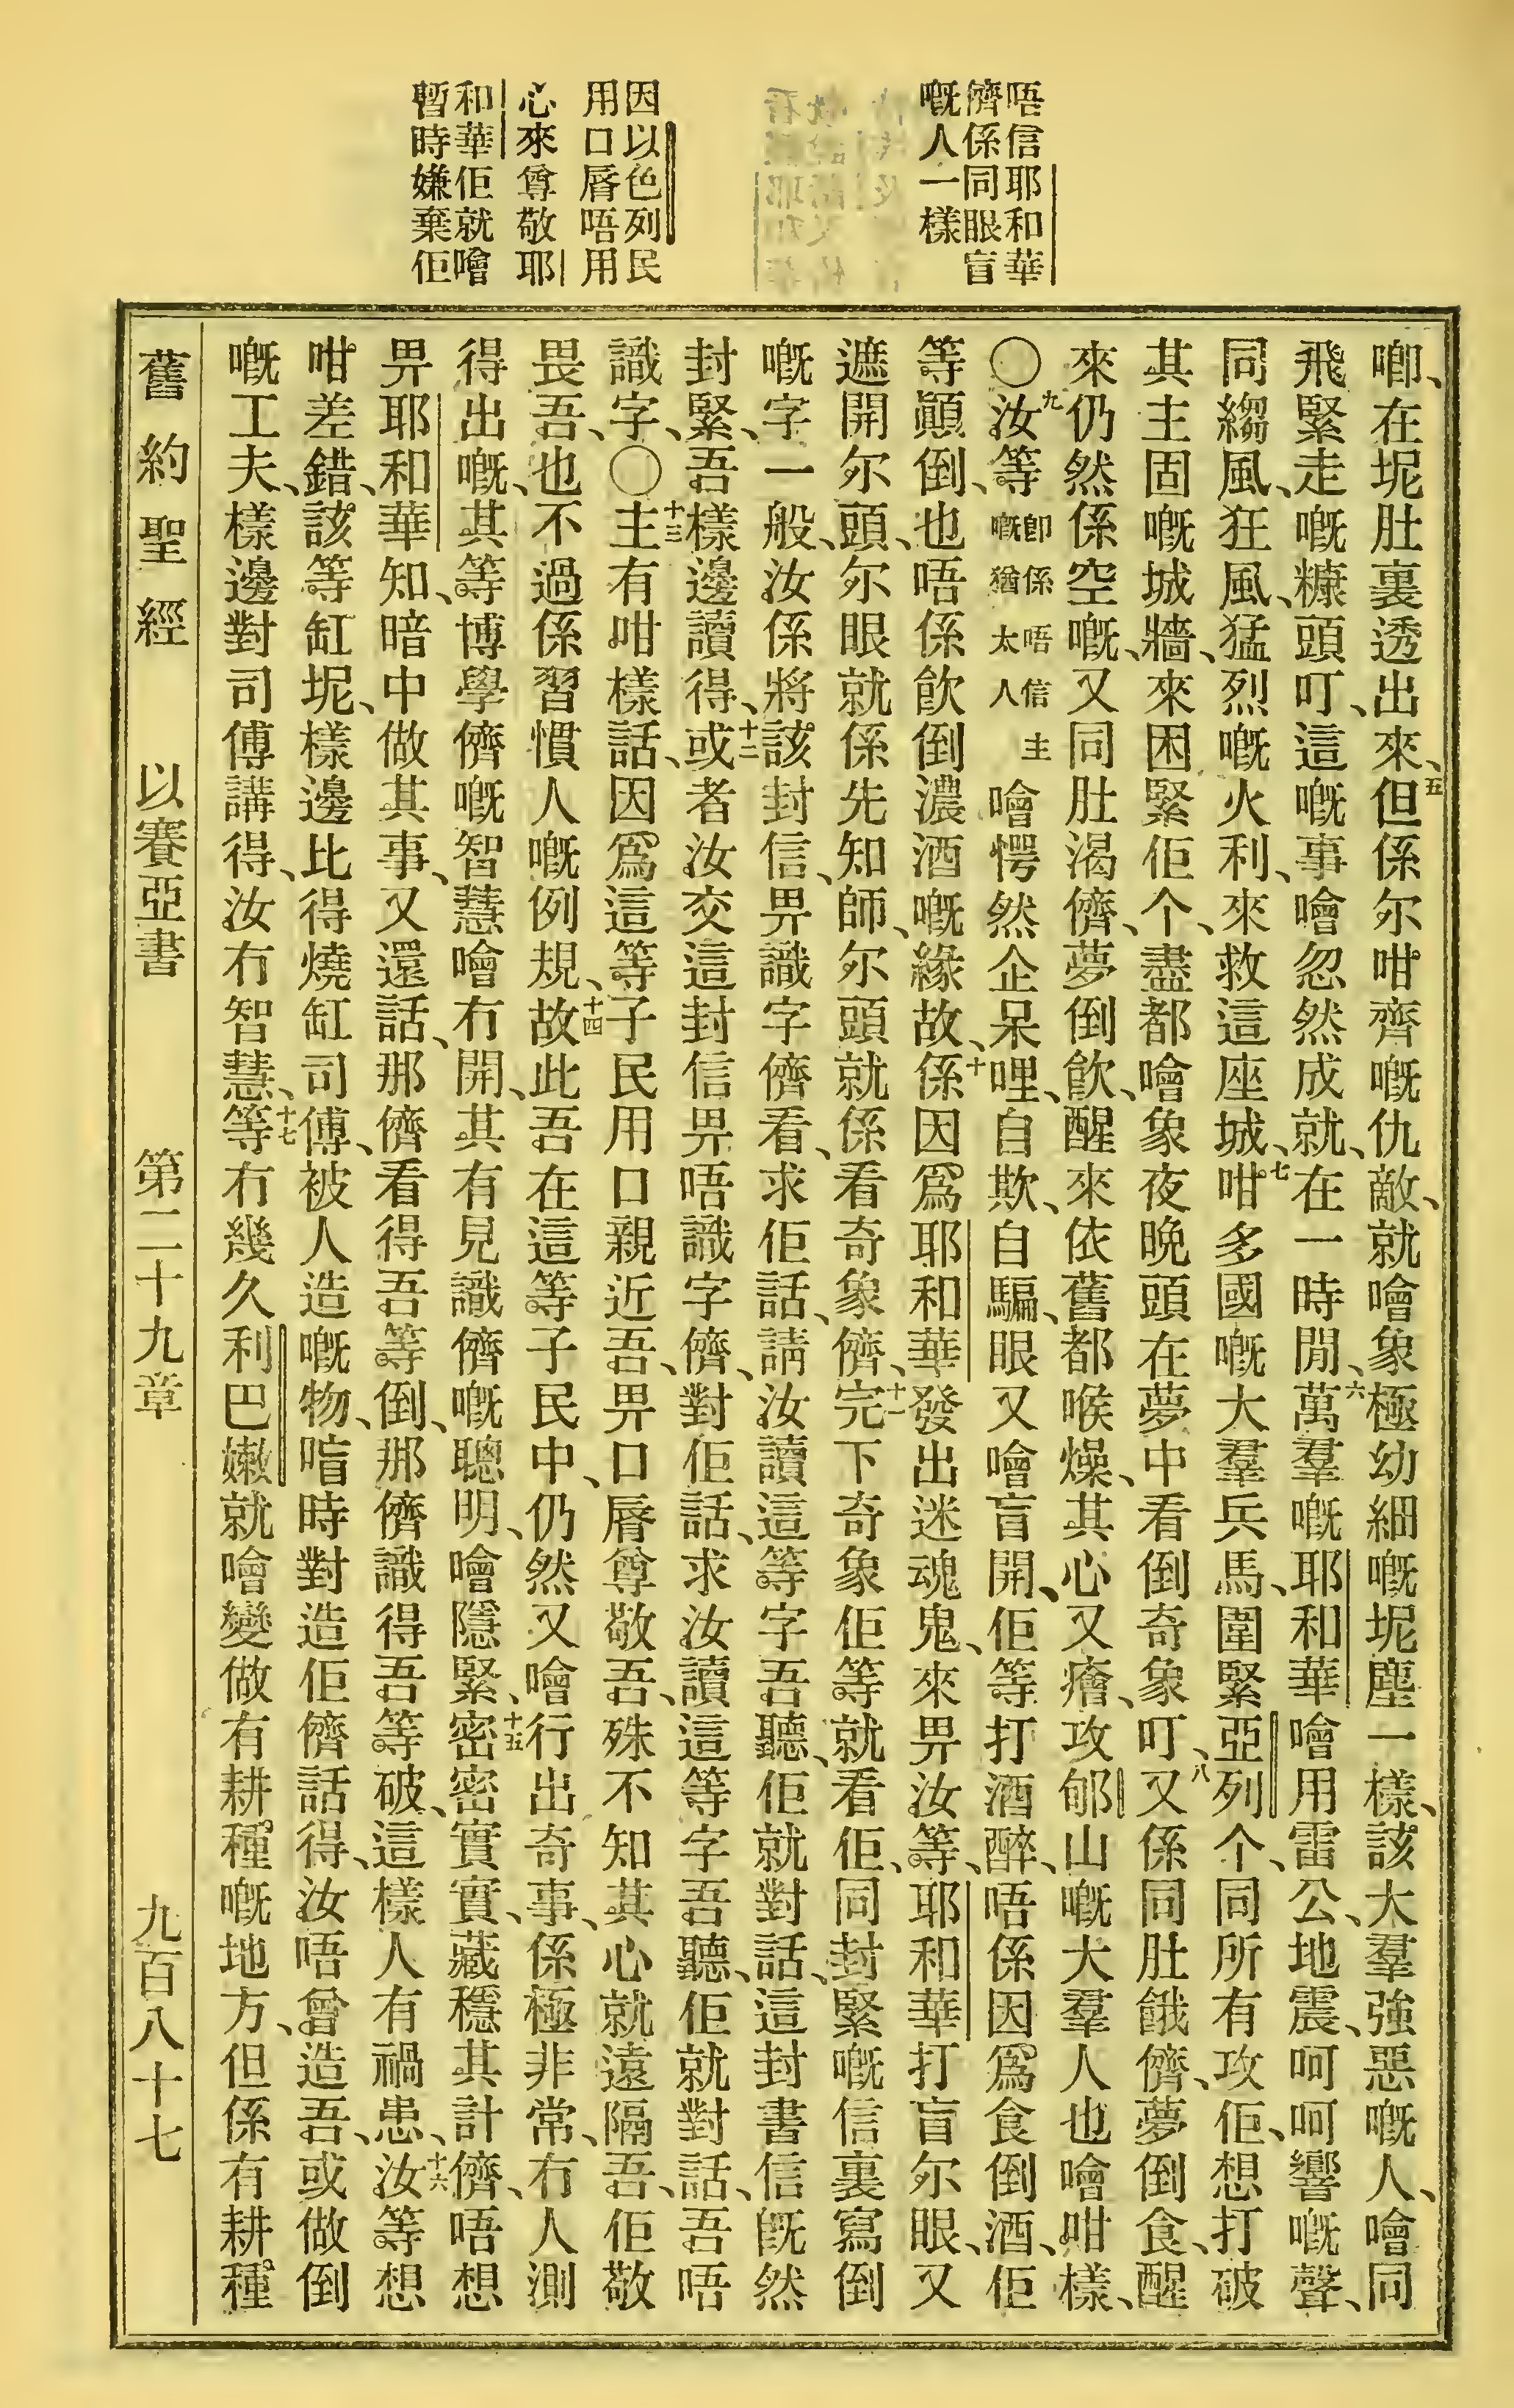 唔信耶和華
儕係同眼盲
嘅人一樣
因以色列民
用口脣唔用
心來尊敬耶
和華佢就噲
暫時嫌棄佢
喞、在坭肚裏透出來、五但係尔咁齊嘅仇敵、就噲象極幼細嘅坭塵一樣、該大羣強惡嘅人、噲同
飛緊走嘅糠頭叮、這嘅事噲忽然成就、在一時閒、六萬羣嘅耶和華噲用雷公、地震、呵呵響嘅聲、
同縐風、狂風、猛烈嘅火利、來救這座城、七咁多國嘅大羣兵馬、圍緊亞列个、同所有攻佢、想打破
其主固嘅城牆、來困緊佢个、盡都噲象夜晚頭在夢中看倒奇象叮、八又係同肚餓儕、夢倒食、醒
來仍然係空嘅、又同肚渴儕、夢倒飮、醒來依舊都喉燥、其心又癐、攻郇山嘅大羣人也噲咁樣、
〇九汝等卽係唔信主嘅猶太人噲愕然企呆哩、自欺、自騙、眼又噲盲開、佢等打酒醉、唔係因爲食倒酒、佢
等顚倒、也唔係飮倒濃酒嘅緣故、十係因爲耶和華發出迷魂鬼、來畀汝等、耶和華打盲尔眼、又
遮開尔頭、尔眼就係先知師、尔頭就係看奇象儕、十一完下奇象佢等就看佢、同封緊嘅信裏寫倒
嘅字一般、汝係將該封信、畀識字儕看、求佢話、請汝讀這等字吾聽、佢就對話、這封書信旣然
封緊、吾樣邊讀得、十二或者汝交這封信畀唔識字儕、對佢話、求汝讀這等字吾聽、佢就對話、吾唔
識字、〇十三主有咁樣話、因爲這等子民用口親近吾、畀口脣尊敬吾、殊不知其心就遠隔吾、佢敬
畏吾、也不過係習慣人嘅例規、十四故此吾在這等子民中、仍然又噲行出奇事、係極非常、冇人測
得出嘅、其等博學儕嘅智慧噲冇開、其有見識儕嘅聰明、噲隱緊、十五密密實實、藏穩其計儕、唔想
畀耶和華知、暗中做其事、又還話、那儕看得吾等倒、那儕識得吾等破、這樣人有禍患、十六汝等想
咁差錯、該等缸坭、樣邊比得燒缸司傅、被人造嘅物、喑時對造佢儕話得、汝唔曾造吾、或做倒
嘅工夫、樣邊對司傅講得、汝冇智慧、十七等冇幾久利巴嫩就噲變做有耕種嘅地方、但係有耕種
舊約聖經　以賽亞書　第二十九章　九百八十七